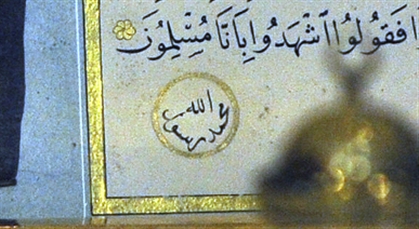 فَقُولُوا اشْهَدُوا بِاَنَّا مُسْلِمُونَ
الله
محمد رسول